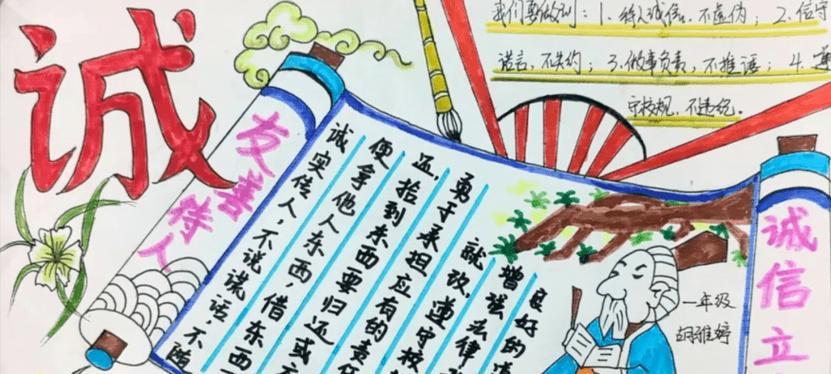 诚
我们要做到：1、待人诚信，不虚伪；2、信守
诺言，不失约；3、做事负责，不推诿；4、遵
守校规，不违纪。
友善待人
诚实待人，不说谎话，不随
便拿他人东西，借东西
要归还或
正，拾到东西
承担应有的责任
勇于
就改，遵守校
增强法律
良好的
一年级
胡雅婷
诚信立